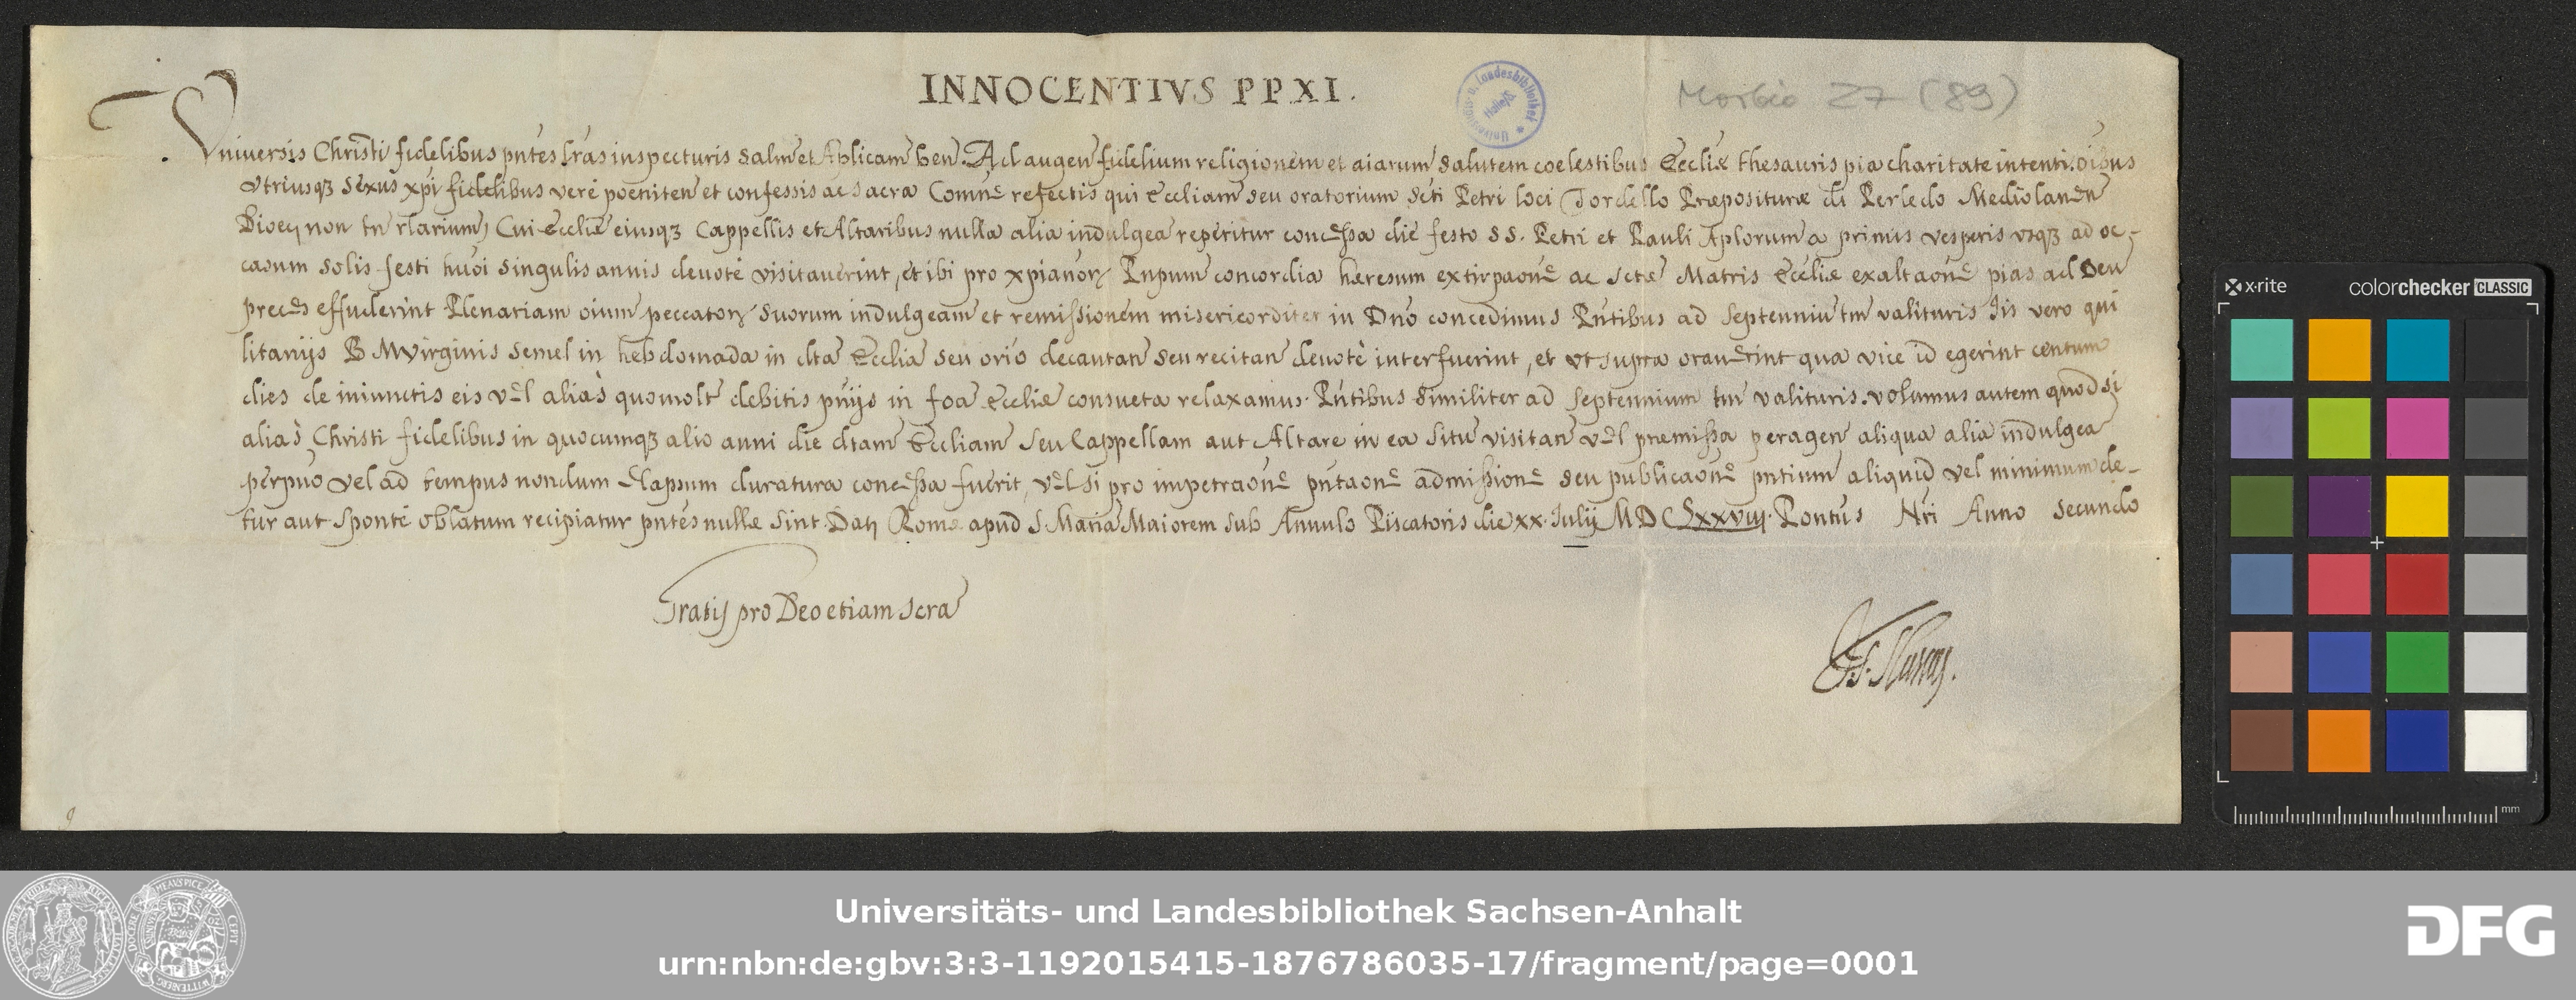 INNOCENTIVS PP XI.
Morbio 27 (89)
Vniuersis Christi fidelibus pntes lras inspecturis salm et Aplicam ben. Ad augen fidelium religionem et aiarum salutem coelestibus Eccliæ thesauris pia charitate intenti. oibus
vtriusq3 sexus xpi fidelibus verè poeniten et confessis ac sacra Comne refectis qui Eccliam seu oratorium Scti Petri loci Tordello Præpositurae di Perledo Mediolanen
Dioec, non tn rlarium, Cui Eccliæ eiusq3 Cappellis et Altaribus nulla alia indulgea reperitur concessa die festo SS. Petri et Pauli Aplorum a primis vesperis vsq3 ad oc-
casum solis festi huoi singulis annis deuotè visitauerint, et ibi pro xpianor Pnpum concordia hæresum extirpaone ac Sctæ Matris Eccliæ exaltaone pias ad Deu
preces effuderint Plenariam oium peccator suorum indulgeam et remissionem misericorditer in Dno concedimus Pntibus ad septenniu tm valituris Iis vero qui
litanijs B M Virginis semel in hebdomada in dta Ecclia seu orio decantan seu recitan deuotè interfuerint, et vt supra orauerint qua vice id egerint centum
dies de iniunctis eis vel aliàs quomolt debitis pnijs in foa Eccliæ consueta relaxamus. Pntibus similiter ad septennium tm valituris. volumus autem quod si
aliàs Christi fidelibus in quocumq3 alio anni die dtam Eccliam seu Cappellam aut Altare in ea situ visitan vel præmissa peragen aliqua alia indulgea
perpuo vel ad tempus nondum elapsum duratura concessa fuerit, vel si pro impetraone pntaone admissione seu publicaone pntium aliquid vel minimum de-
tur aut sponte oblatum recipiatur pntes nullæ sint. Dat Romæ apud S Maria Maiorem sub Annulo Piscatoris die xx. Iulij MDCLxxviij. Pontus Nri Anno secundo
Gratis pro Deo etiam scra
Universitäts- und Landesbibliothek Sachsen-Anhalt
urn:nbn:de:gbv:3:3-1192015415-1876786035-17/fragment/page=0001
DFG
x-rite
colorchecker CLASSIC
mm